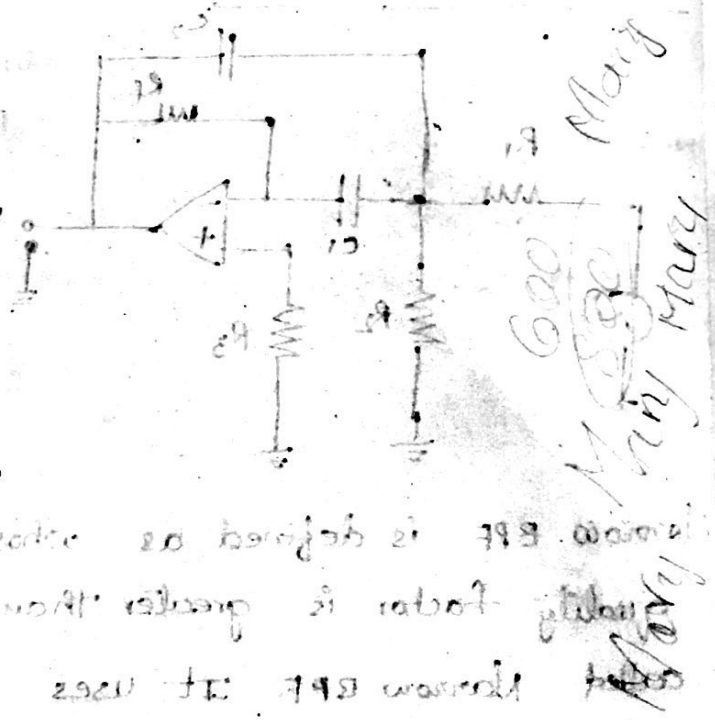 C2
Rf
R1
C1
+
R3
R2
Mary
Mary
Mary
Mary
600
500
Narrow BPF is defined as
quality factor is greater than
called Narrow BPF It uses